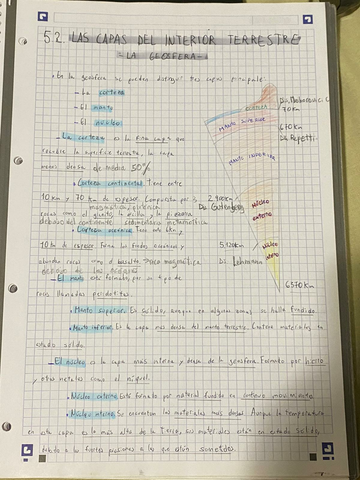 5.2. LAS CAPAS DEL INTERIOR TERRESTRE
- LA GEOSFERA -
• En la geosfera se pueden distinguir tres capas
- La corteza
- El manto
- El núcleo
- La corteza es la fina capa que
la superficie terrestre, la capa
menos densa de media
• Corteza continental tiene entre
10 km y 70 km de espesor. Compuesta por
rocas como el granito, la arcilla y la pizarra
• Corteza oceánica
10 km de espesor. Forma los fondos oceánicos y
abundan rocas como el basalto
- El manto está formado, por un tipo de
rocas llamadas peridotitas.
• Manto superior. Es solido, aunque en algunas zonas se halla fundido.
• Manto inferior. Es la capa mas densa del manto terrestre. Contiene materiales en
estado solido.
- El núcleo es la capa mas interna y densa de la geosfera. Formado por hierro
y otros metales como el niquel.
• Núcleo externo. Esta formado por material fundido en continuo movimiento.
• Núcleo interno. Se encuentran los materiales mas densos. Aunque la temperatura
en esta capa es la más alta de la Tierra, sus materiales están en estado solido,
debido a las fuertes presiones a las que están sometidos.
CORTEZA
70 km
MANTO SUPERIOR
670 km
Dis. Repetti
MANTO INFERIOR
2.900 km
Dis. Gutenberg
NÚCLEO
externo
5.120 km
Dis. Lehmann
NÚCLEO
interno
6370 km